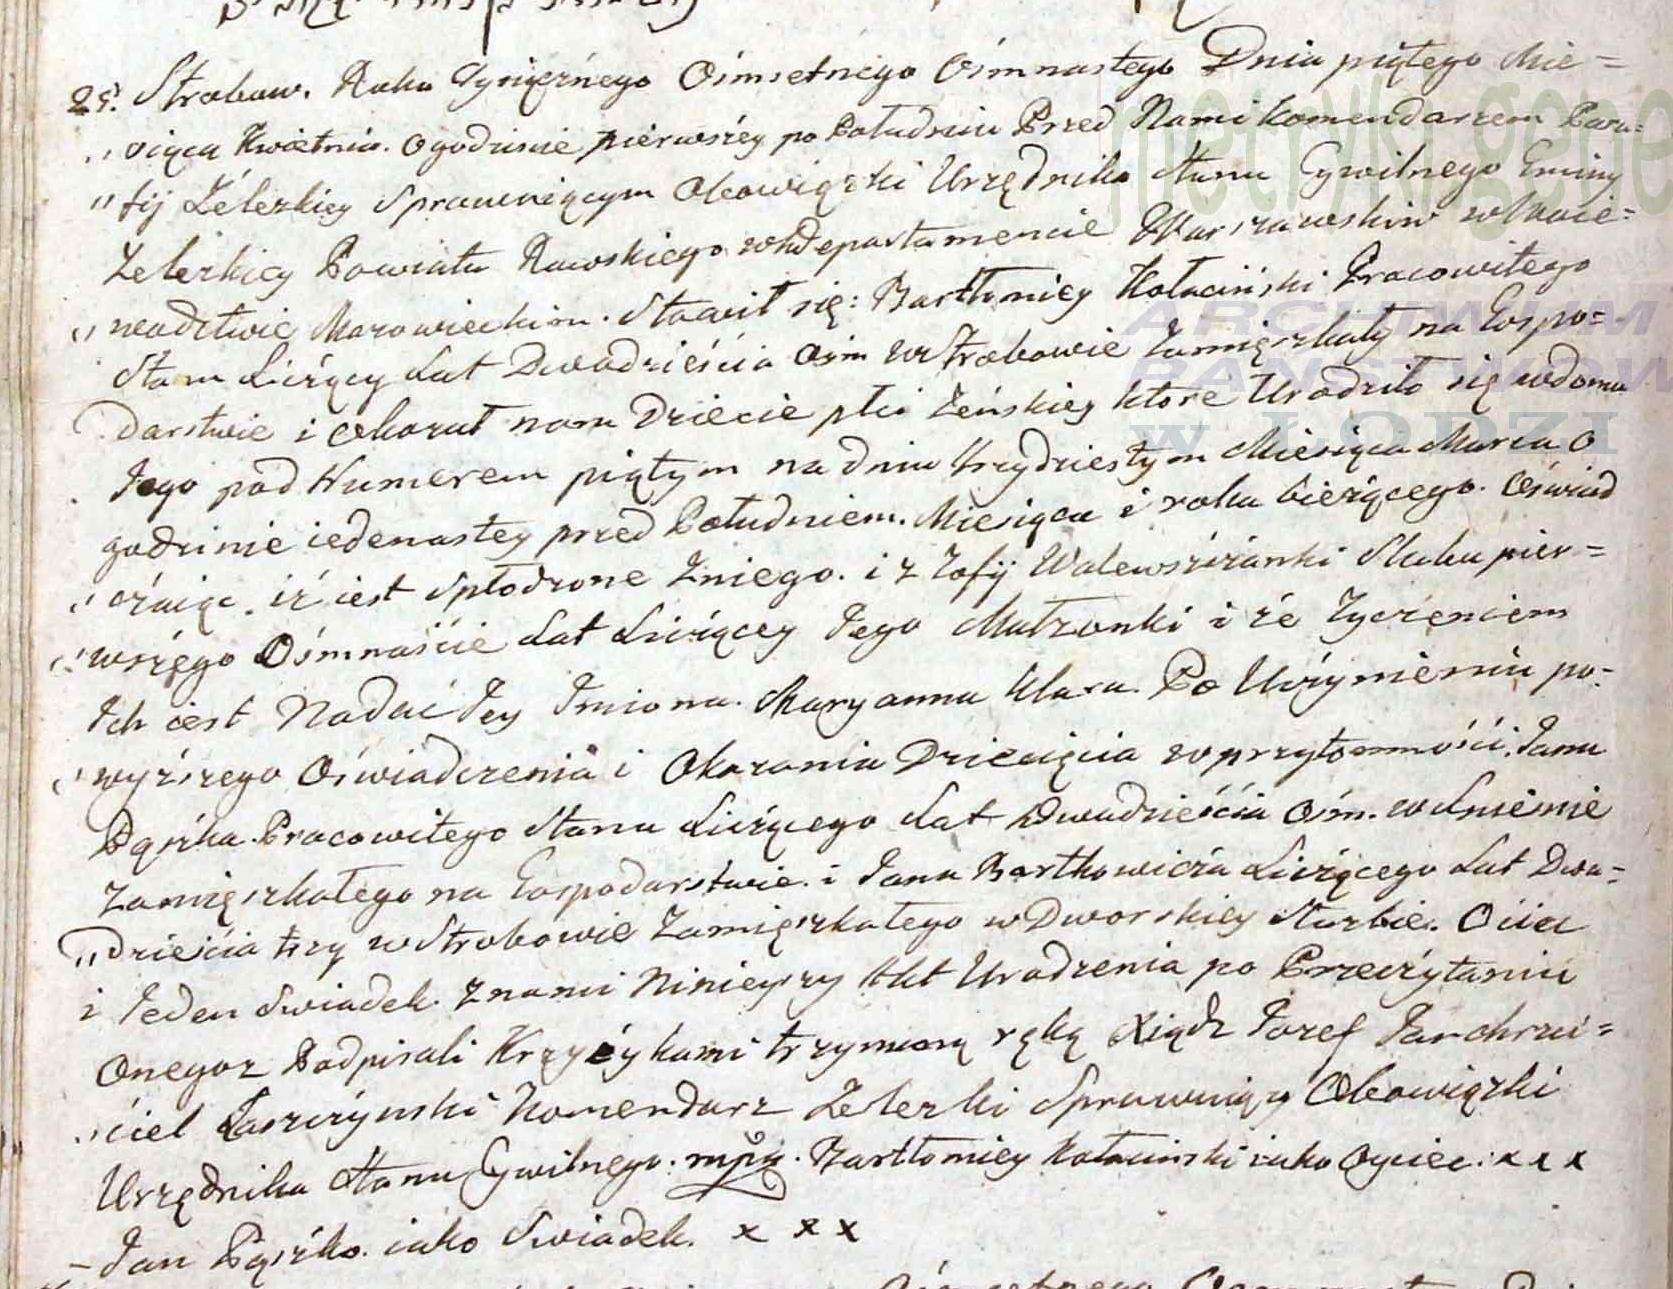 25. Strobow. Roku Tysięcznego Ośmsetnego Ośmnastego Dnia piątego Mie=
" siąca Kwietnia. o godzinie pierwszey po Południu Przed Nami Komendarzem Para=
" fij Żelezkiey Sprawuiącym Obowiązki Urzędnika Stanu Cywilnego Gminy
Zelezkiey Powiatu Rawskiego w Departamencie Warszawskim w Woie=
" wodztwie Mazowieckim. Stawił się: Bartłomiey Kołaciński Pracowitego
Stanu Liczący Lat Dwadzieścia Ośm w Strobowie Zamięszkały na Gospo=
Darstwie i okazał nam Dziecie płci Zeńskiey ktore Urodziło się w domu
Jego pod Numerem piątym na dniu trzydziestym Miesiąca Marca O
godzinie iedenastey przed Południem. Miesiąca i roku bieżącego. Oświad
" czaiąc. iż iest Spłodzone Zniego. i z Zofij Walewszczanki Slubu pier=
" wszego Ośmnaście Lat Liczącey Jego Małzonki i że Zyczeniem
Ich iest Nadać Jey Imiona. Maryanna Klara. Po Uczynieniu po=
" wyższego Oświadczenia i Okazania Dziecięcia w przytomności. Jana
Pączka. Pracowitego Stanu Liczącego Lat Dwadzieścia Ośm. w
Zamięszkałego na Gospodarstwie. i Jana Bartkowicza Liczącego Lat Dwa=
" dzieścia trzy w Strobowie Zamięszkałego w Dworskiey Służbie. Ociec
i Jeden Swiadek. Znami Ninieyszy Akt Urodzenia po Przeczytaniu
Onegoz Podpisali Krzyżykami trzymaną ręką Xiądz Jozef Jan chrzci=
" ciel Laszczynski Komendarz Zelezki Sprawuiący Obowiązki
Urzędnika Stanu Cywilnego. mpią. Bartłomiey Kołacinski iako Oyciec. x x x
– Jan Pączko. iako Swiadek. x x x
metryki gene
ARCHIWUM
PAŃSTWOW
W ŁODZI